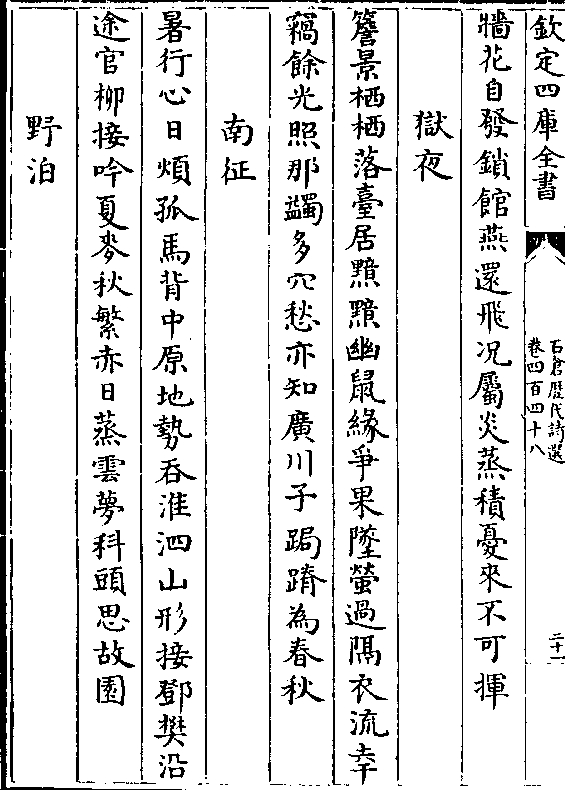 欽定四庫全書
石倉歷代詩選
卷四百四十八
二十一
牆花自發鎖館燕還飛况屬炎蒸積憂來不可揮
獄夜
簷景栖栖落臺居黯黯幽鼠緣爭果墜螢過隔衣流幸
竊餘光照那蠲多穴愁亦知廣川子跼蹐為春秋
南征
暑行心日煩孤馬背中原地勢吞淮泗山形接鄧樊沿
途官柳接吟夏麥秋繁赤日蒸雲夢科頭思故園
野泊